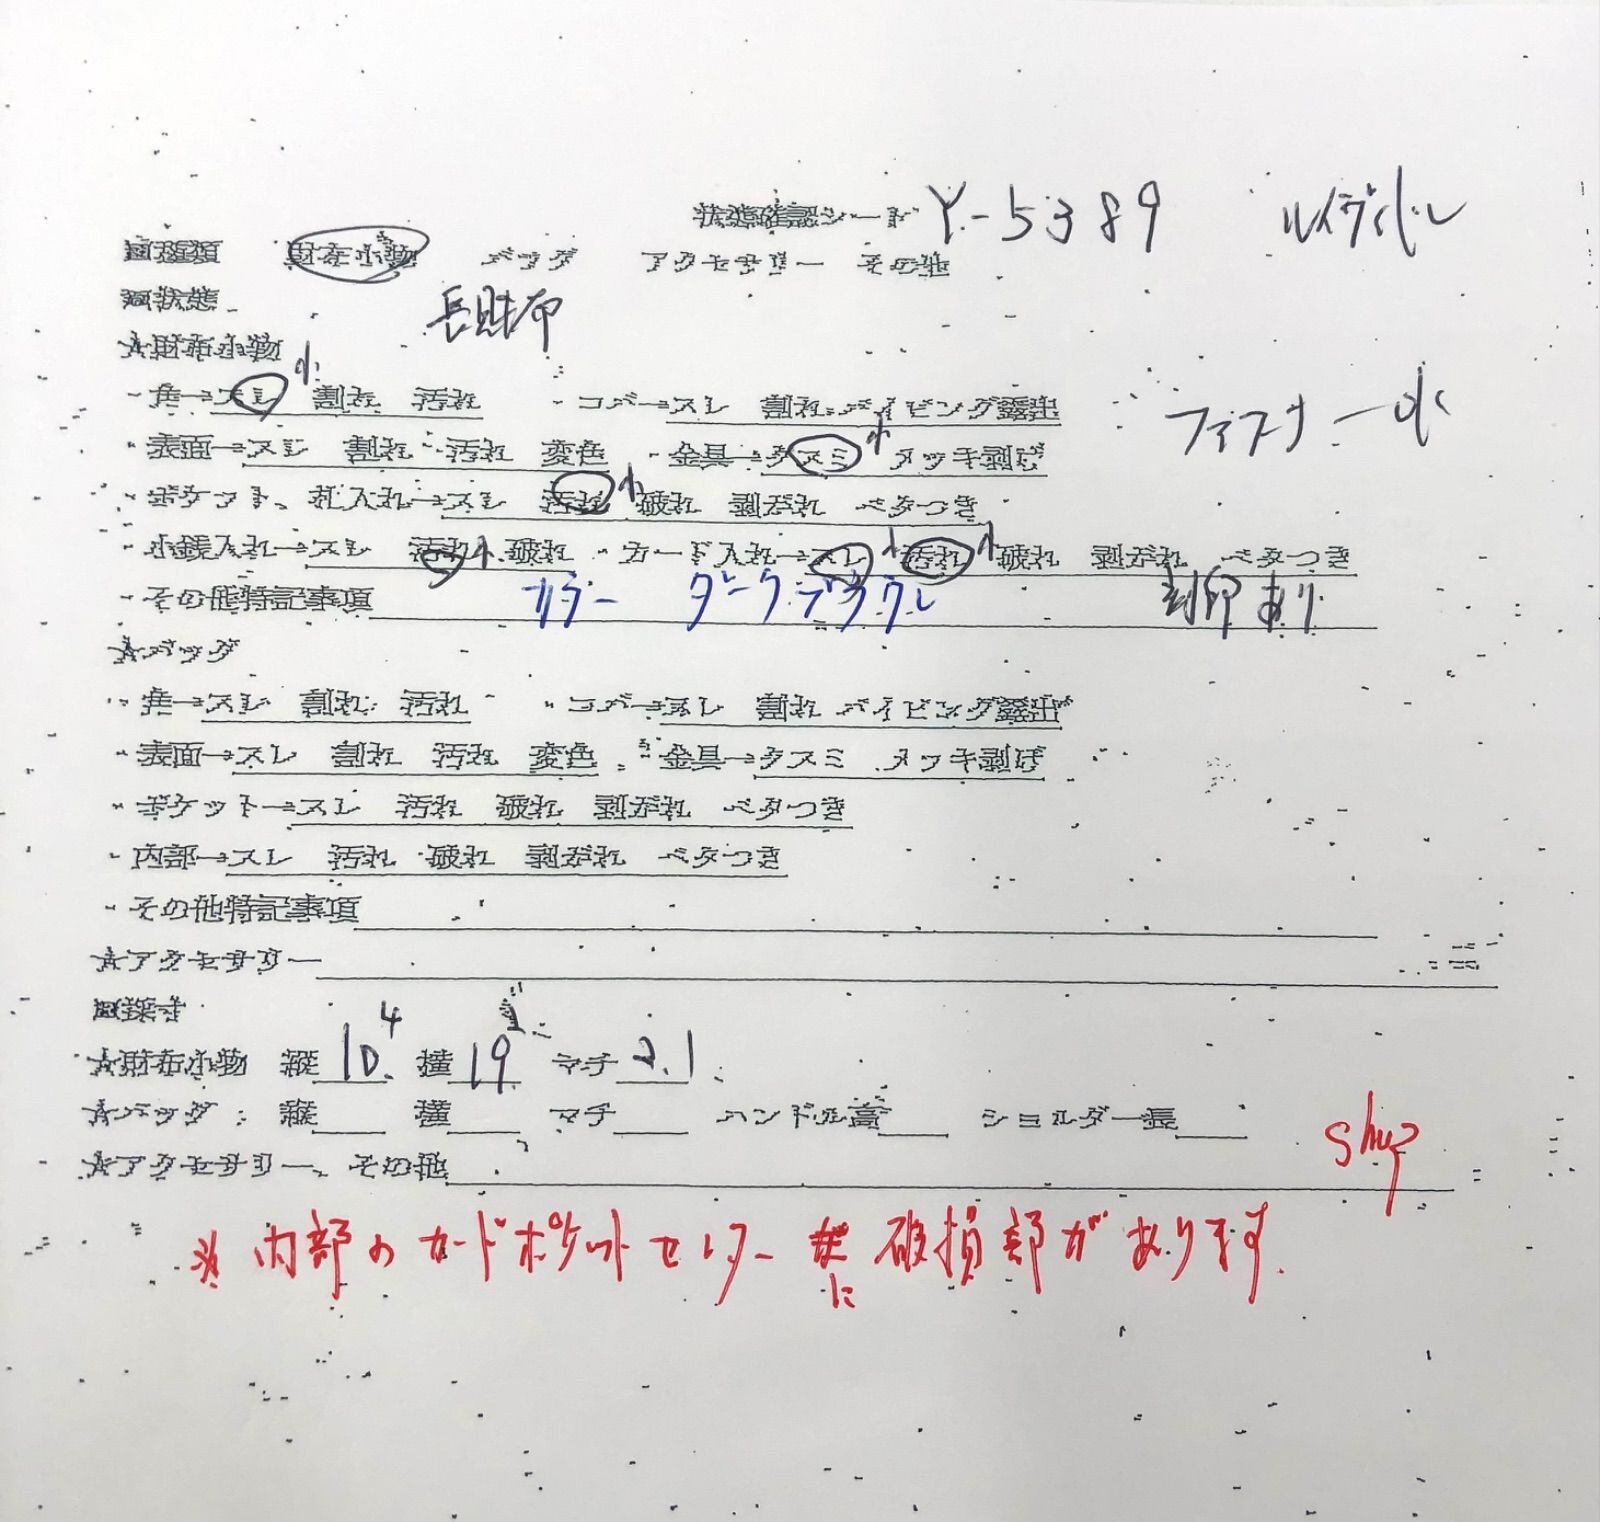 状態確認シート Y-5389 ルイヴィトン
■種類 財布小物 バッグ アクセサリー その他
■状態 長財布
☆財布小物
・角→スレ 小 割れ 汚れ ・コバ→スレ 割れ パイピング露出 ファスナー小
・表面→スレ 割れ 汚れ 変色 ・金具→クスミ 小 メッキ剥げ
・ポケット、札入れ→スレ 汚れ 小 破れ 剥がれ ベタつき
・小銭入れ→スレ 汚れ 小 破れ ・カード入れ→スレ 小 汚れ 小 破れ 剥がれ ベタつき
・その他特記事項 カラー ダークブラウン 刻印あり
☆バッグ
・角→スレ 割れ 汚れ ・コバ→スレ 割れ パイピング露出
・表面→スレ 割れ 汚れ 変色 ・金具→クスミ メッキ剥げ
・ポケット→スレ 汚れ 破れ 剥がれ ベタつき
・内部→スレ 汚れ 破れ 剥がれ ベタつき
・その他特記事項
☆アクセサリー
■採寸
☆財布小物 縦 10.4 横 19 マチ 2.1
☆バッグ 縦 横 マチ ハンドル高 ショルダー長
☆アクセサリー、その他
※内部のカードポケットセンターに破損部があります.